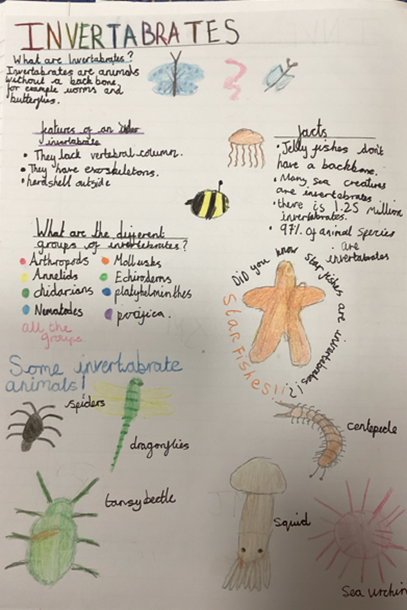 INVERTABRATES
What are Invertabrates?
Invertabrates are animals
without a backbone
for example worms and
butterflies.
features of an
invertabrate
• They lack vertebral column.
• They have exoskeletons.
• hard shell outside
facts
• Jelly fishes don't
have a backbone.
• Many sea creatures
are invertabrates
• there is 1.25 million
invertabrates.
• 97% of animal species
are
invertabrates
What are the different
groups of invertebrates?
• Arthropods
• Mollusks
• Annelids
• Echinoderms
• chidarians
• platyhelminthes
• Nematodes
• porifica.
all the
groups.
Did you know starfishes are invertabrates
STARFISHES!!¡!
Some invertabrate
animals!
spiders
dragonflies
centepede
tansy beetle
squid
Sea urchin